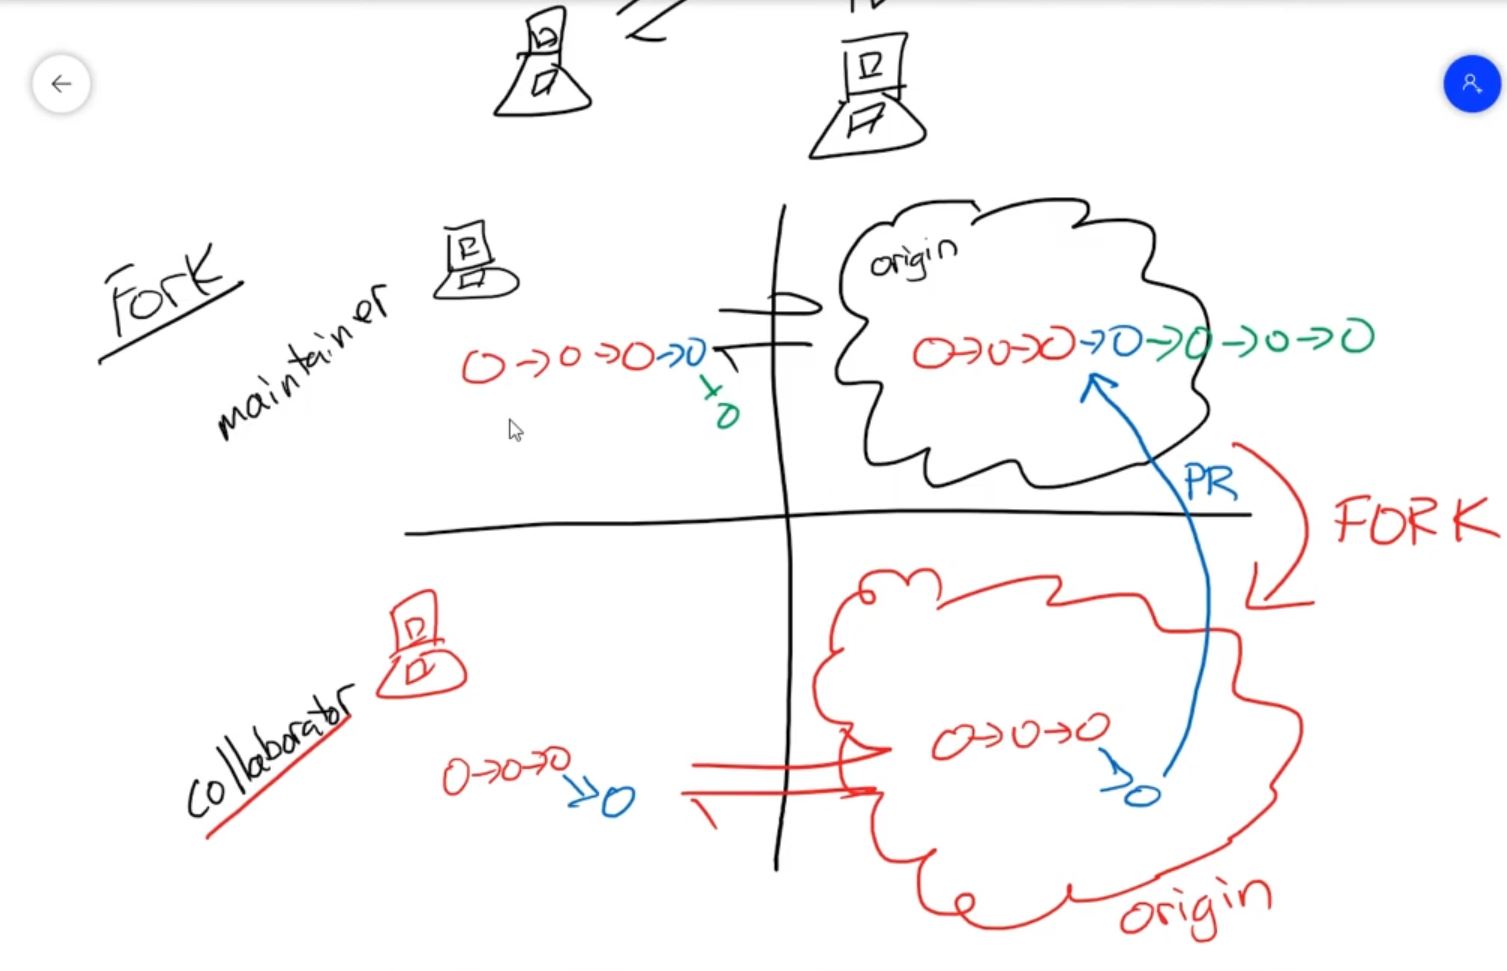 Fork
maintainer
origin
PR
FORK
collaborator
origin